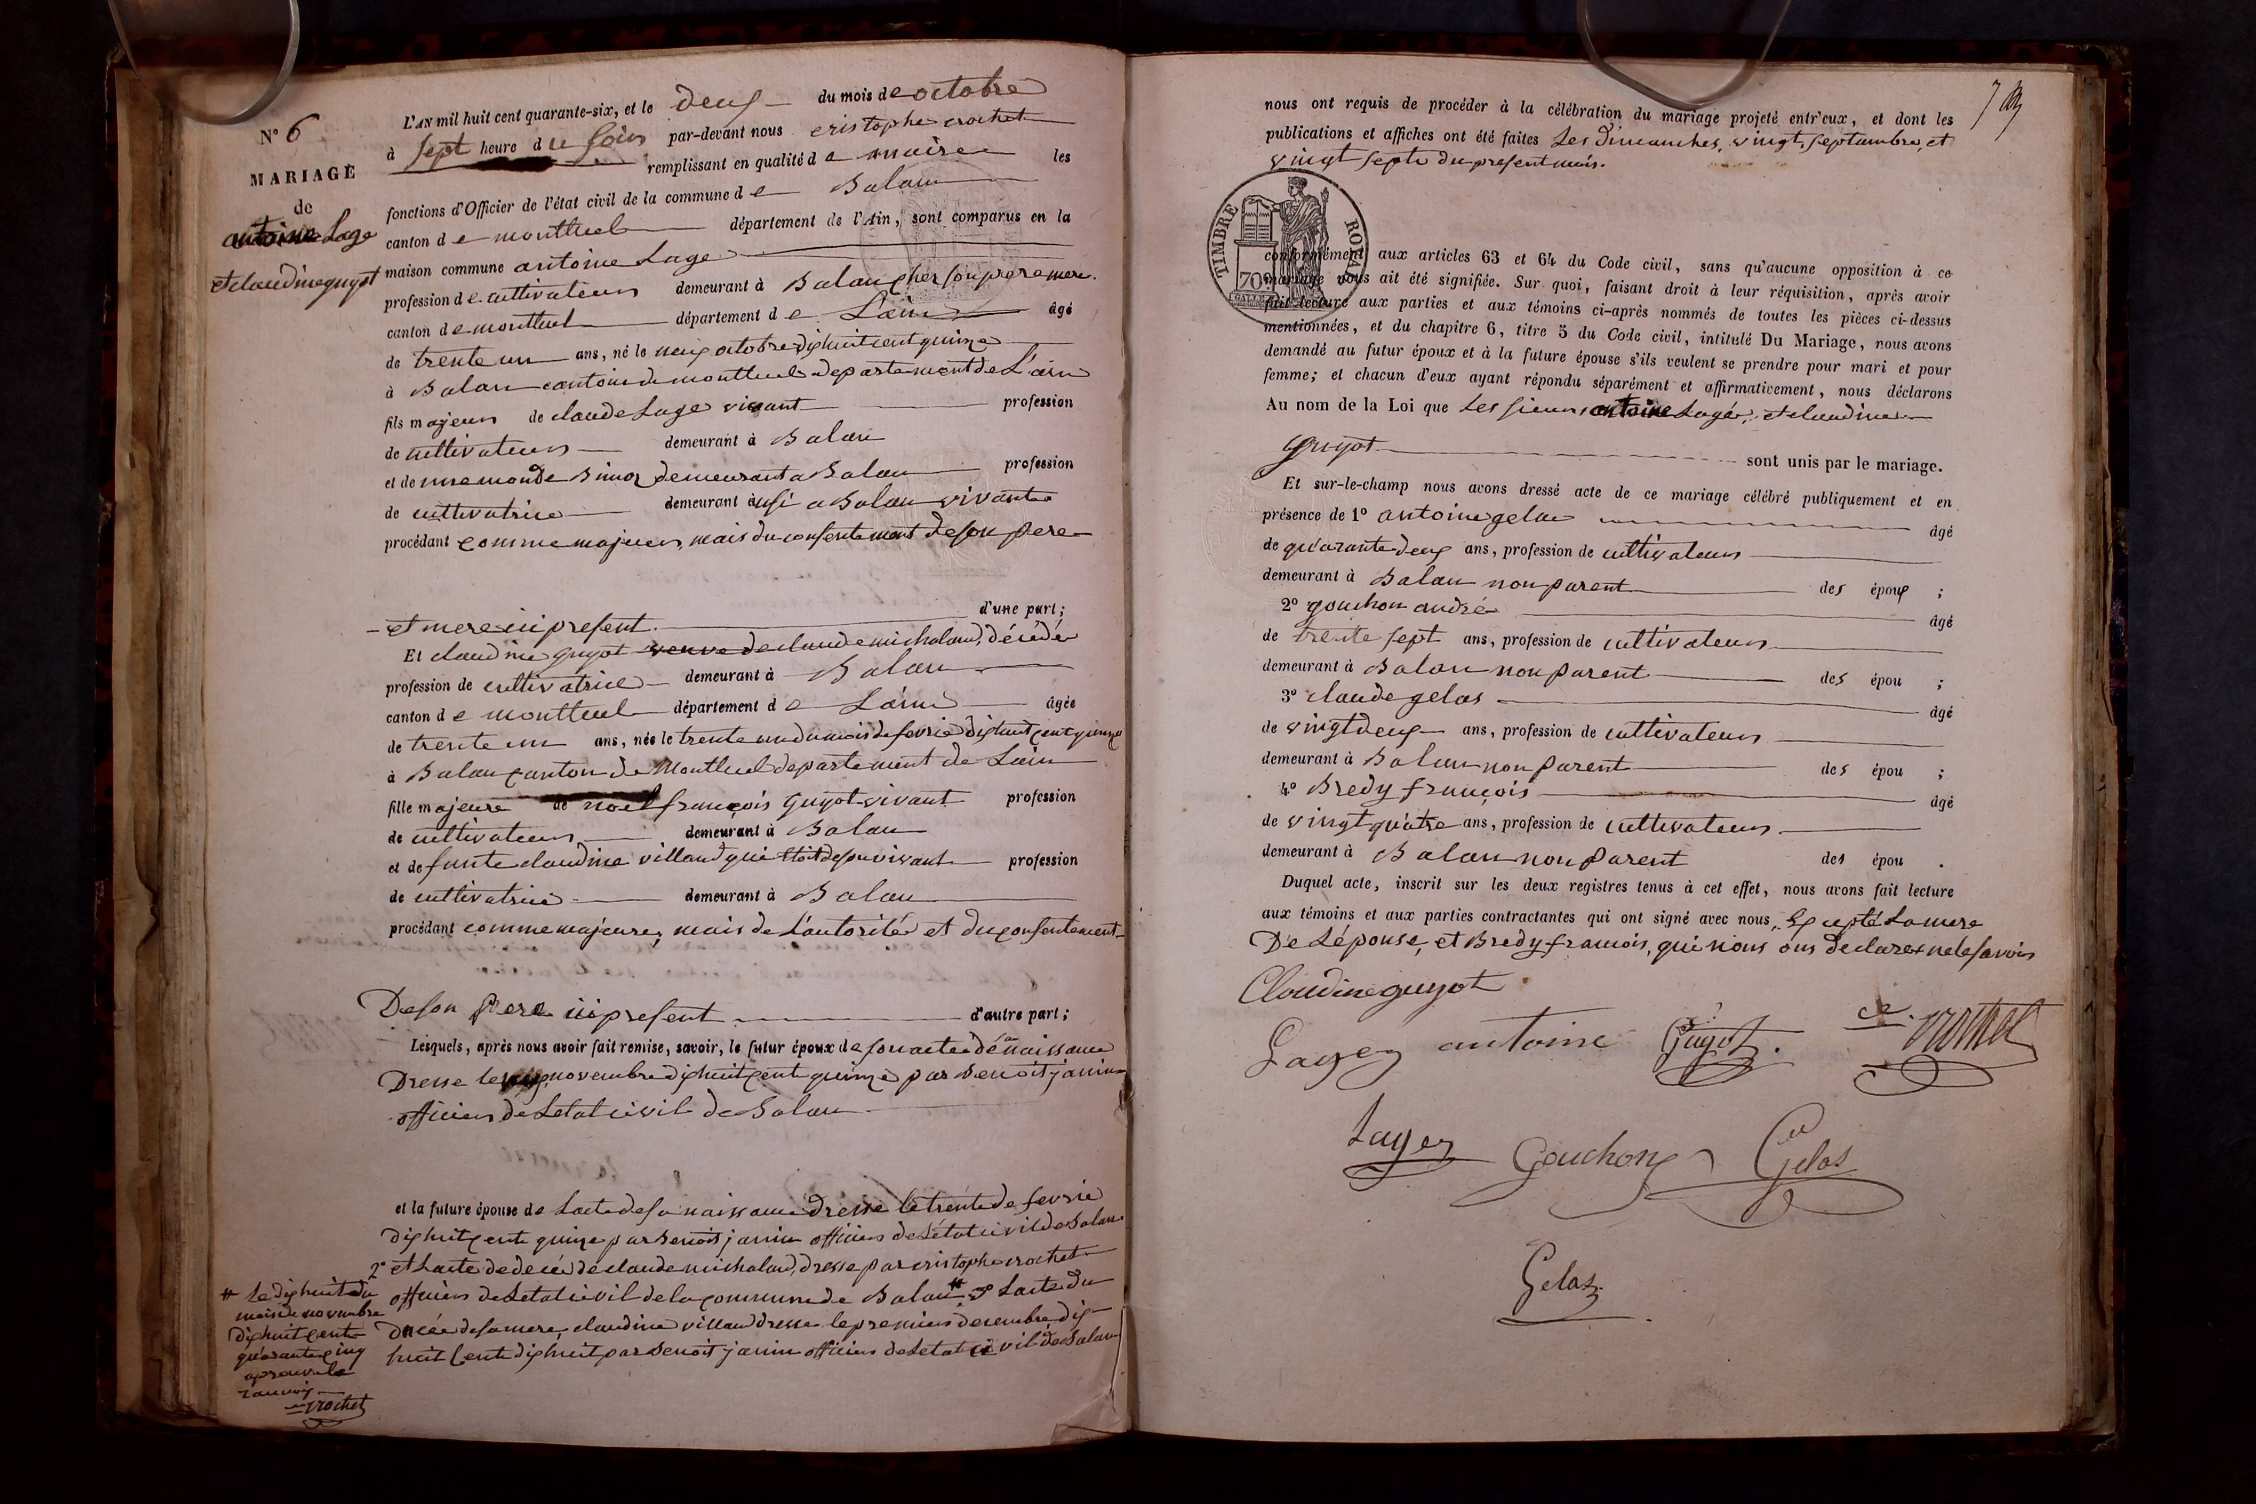 N° 6
MARIAGE
de
antoine Lage
et claudine guyot
L'AN mil huit cent quarante-six, et le deux du mois de octobre
à sept heure du soir par-devant nous cristophe crochet
remplissant en qualité de maire les
fonctions d'Officier de l'état civil de la commune de Balan
canton de montluel département de l'Ain, sont comparus en la
maison commune antoine Lage
profession de cultivateur demeurant à Balan chez son pere mere
canton de montluel département de Lain âgé
de trente un ans, né le octobre dix huit cent quinze
à Balan canton de montluel departement de L'ain
fils majeur de claude Lage vivant profession
de cultivateur demeurant à Balan
et de demeurant a Balan profession
de cultivatrice demeurant à a Balan vivante
procédant comme majeur, mais du consentement de son pere
et mere ici present d'une part;
Et claudine guyot veuve de claude michaland, décédé
profession de cultivatrice demeurant à Balan
canton de montluel département de Lain âgée
de trente un ans, née le trente un du mois de fevrié dix huit cent quinze
à Balan canton de Montluel departement de Lain
fille majeure de noël françois guyot vivant profession
de cultivateur demeurant à Balan
et de funte claudine villand qui étoit de son vivant profession
de cultivatrice demeurant à Balan
procédant comme majeure, mais de L'autorité et du consentement
De son Pere ici present d'autre part;
Lesquels, après nous avoir fait remise, savoir, le futur époux de son acte de sa naissance
Dresse le novembre dix huit cent quinze par Benoit janin
officier de Letat civil de Balan
et la future épouse de Lacte de sa naissance dresse le trente de fevrié
dix huit cent quinze par Benoit janin officier de Létat civil de Balan
2° et Lacte de décé de claude michaland, dresse par cristophe crochet
officier de Letat civil de la commune de Balan # & Lacte du
décée de sa mere, claudine villand dresse le premier décembre dix
huit cent dix huit par Benoit janin officier de Letat civil de Balan
# Le dix huit du
mois de novembre
dix huit cent
quarante cinq
aprouvé le
renvoy
crochet
nous ont requis de procéder à la célébration du mariage projeté entr'eux, et dont les
publications et affiches ont été faites Les dimanches, vingt septembre, et
vingt sept du present mois.
TIMBRE ROYAL
70c
conformément aux articles 63 et 64 du Code civil, sans qu'aucune opposition à ce
mariage nous ait été signifiée. Sur quoi, faisant droit à leur réquisition, après avoir
fait lecture aux parties et aux témoins ci-après nommés de toutes les pièces ci-dessus
mentionnées, et du chapitre 6, titre 5 du Code civil, intitulé Du Mariage, nous avons
demandé au futur époux et à la future épouse s'ils veulent se prendre pour mari et pour
femme; et chacun d'eux ayant répondu séparément et affirmativement, nous déclarons
Au nom de la Loi que Les sieurs antoine Lagé, et claudine
guyot sont unis par le mariage.
Et sur-le-champ nous avons dressé acte de ce mariage célébré publiquement et en
présence de 1° antoine gelas âgé
de quarante deux ans, profession de cultivateur
demeurant à Balan non parent des époux ;
2° gouchon andré âgé
de trente sept ans, profession de cultivateur
demeurant à Balan non parent des épou ;
3° claude gelas âgé
de vingt deux ans, profession de cultivateur
demeurant à Balan non parent des épou ;
4° Bredy françois âgé
de vingt quatre ans, profession de cultivateur
demeurant à Balan non parent des épou .
Duquel acte, inscrit sur les deux registres tenus à cet effet, nous avons fait lecture
aux témoins et aux parties contractantes qui ont signé avec nous, Excepté La mere
De Lépouse, et Bredy framois, qui nous ons declaret ne le savoir
Claudine guyot
Lagez antoine Guyot ce. crochet
Lagez Gouchon Gelas
Gelas